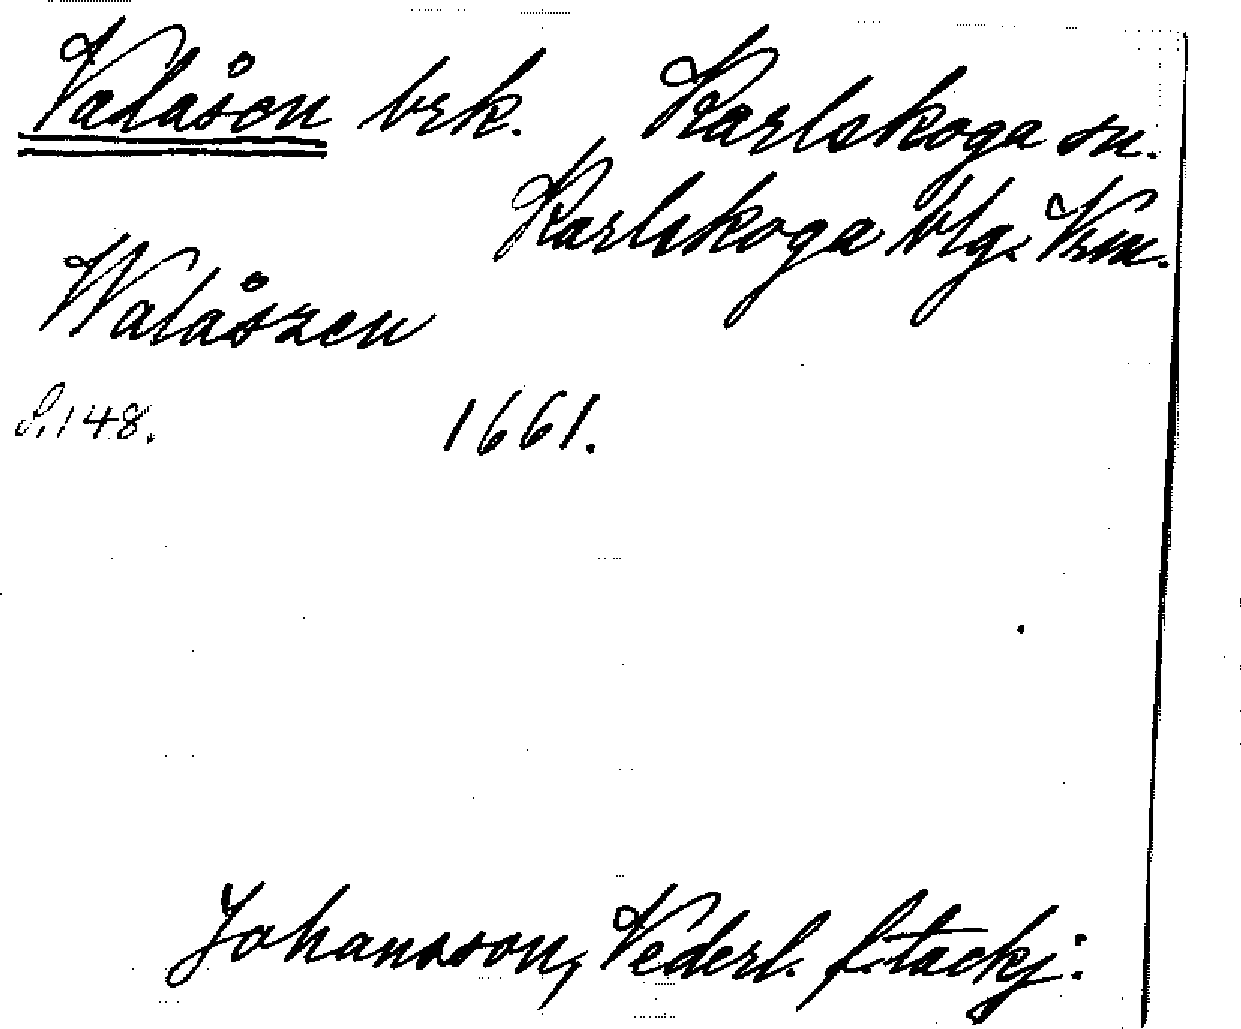 Valåsen brk. Karlskoga sn.
Karlskoga blg. Vrm.
Walåszen
S. 148. 1661.
Johansson, Vederl. f. tackj: